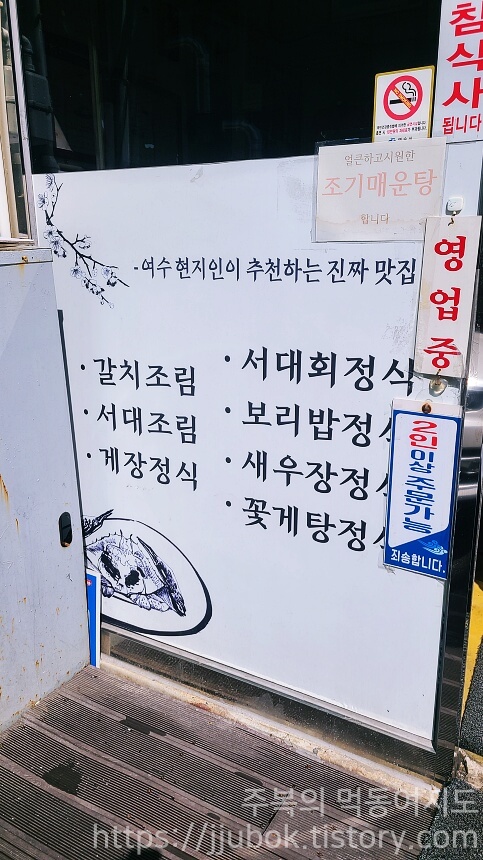 침
식
사
됩니다
얼큰하고시원한
조기매운탕
합니다
-여수 현지인이 추천하는 진짜 맛집
영
업
중
·갈치조림
·서대조림
·게장정식
·서대회정식
·보리밥정식
·새우장정
·꽃게탕정
2인이상 주문가능
죄송합니다.
주복의 먹동여지도
https://jjubok.tistory.com